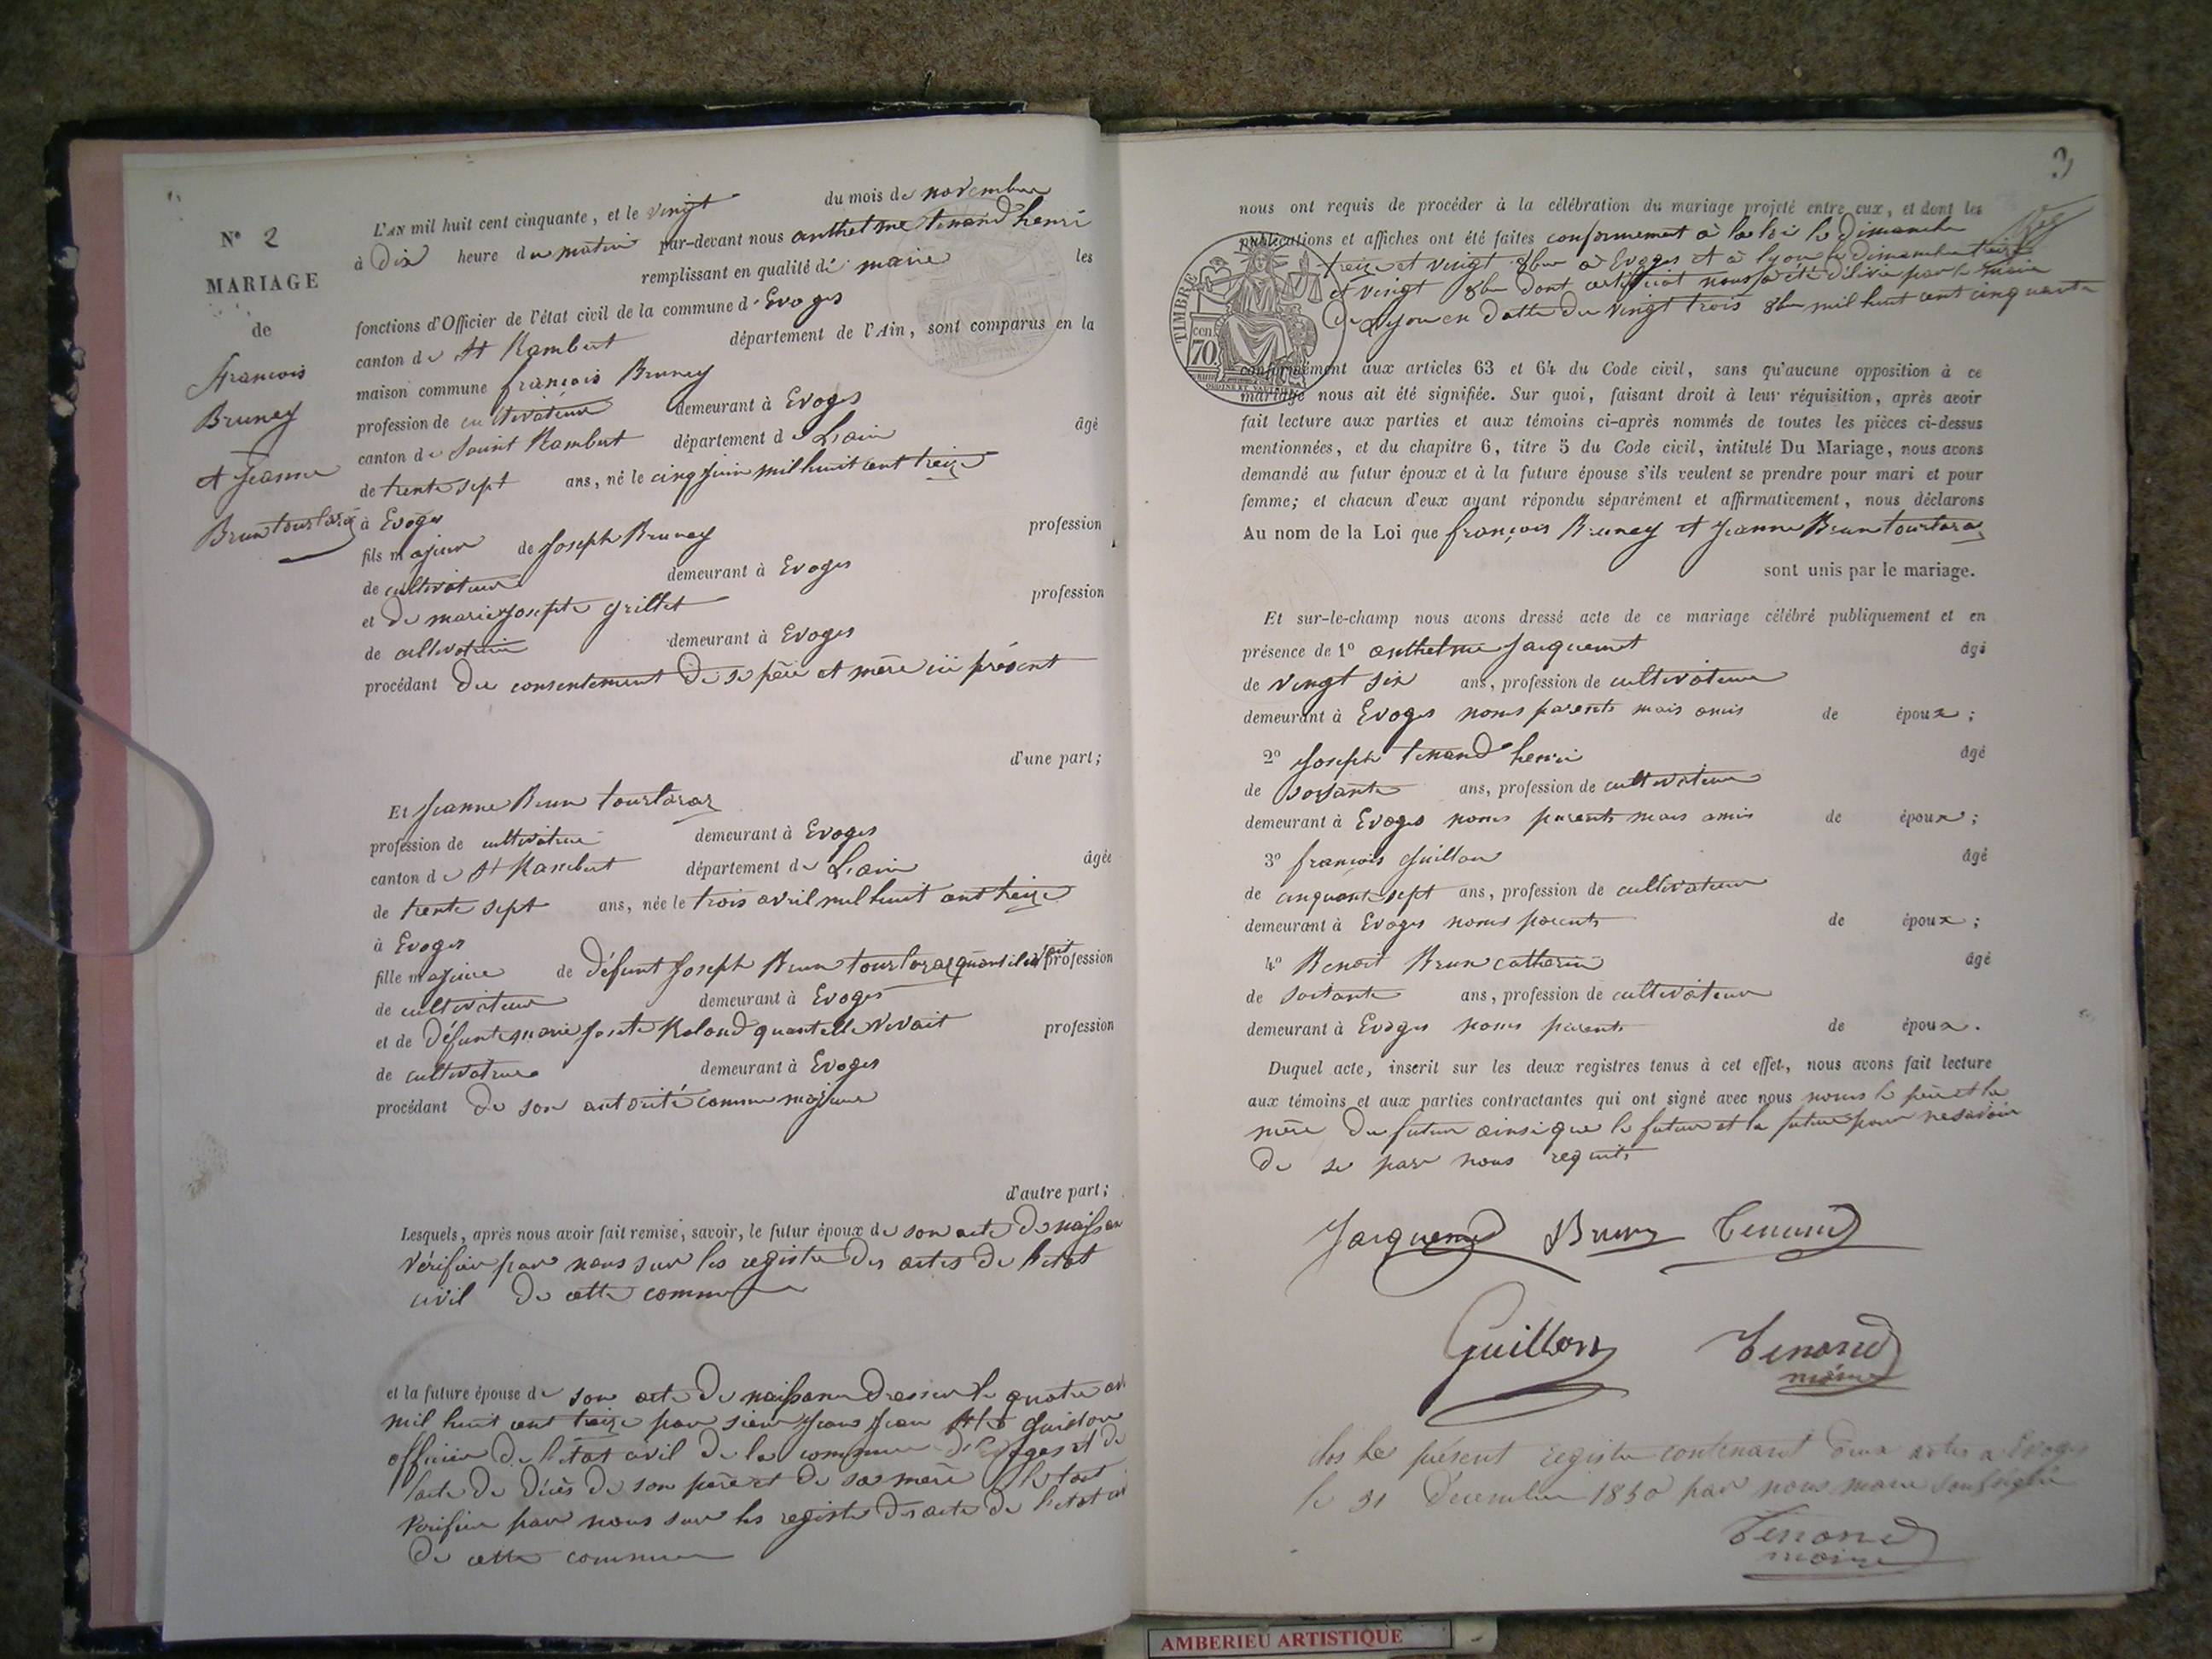 N° 2
MARIAGE
de
François
Bruney
et Jeanne
Brun tourtaraz
L'AN mil huit cent cinquante, et le vingt du mois de novembre
à Dix heure du matin par-devant nous anthelme tenand henri
remplissant en qualité de maire les
fonctions d'Officier de l'état civil de la commune d'Evoges
canton de St Rambert département de l'Ain, sont comparus en la
maison commune françois Bruney
profession de cultivateur demeurant à Evoges
canton de Saint Rambert département de L'ain âgé
de trente sept ans, né le cinq juin mil huit cent treize
à Evoges
fils majeur de Joseph Bruney profession
de cultivateur demeurant à Evoges
et de marie josephte grillet profession
de cultivatrice demeurant à Evoges
procédant du consentement de se père et mère ici présent
d'une part;
Et Jeanne Brun tourtaraz
profession de cultivatrice demeurant à Evoges
canton de St Rambert département de L'ain âgée
de trente sept ans, née le trois avril mil huit cent treize
à Evoges
fille majeure de Défunt Joseph Brun tourtaraz quant il vivait profession
de cultivateur demeurant à Evoges
et de Défunte marie Josete Roland quant elle vivait profession
de cultivatrice demeurant à Evoges
procédant de son autorité comme majeure
d'autre part;
Lesquels, après nous avoir fait remise, savoir, le futur époux de son acte de naissan
vérifier par nous sur les registre des actes de l'etat
civil de cette commune
et la future épouse de son acte de naissance dresser le quatre av
mil huit cent treize par sieur jean guillon
officier de l'état civil de la commune d'Evoges et de
l'acte de décès de son père et de sa mère le tout
vérifier par nous sur les registre des acte de l'etat ci
de cette commune
3
nous ont requis de procéder à la célébration du mariage projeté entre eux, et dont les
publications et affiches ont été faites conformement à la loi le Dimanche
treize et vingt 8bre à Evoges et à lyon le dimanche treize
et vingt 8bre dont certificat nous a été délivré par le maire
de Lyon en datte du vingt trois 8bre mil huit cent cinquante
TIMBRE
70 cen
conformément aux articles 63 et 64 du Code civil, sans qu'aucune opposition à ce
mariage nous ait été signifiée. Sur quoi, faisant droit à leur réquisition, après avoir
fait lecture aux parties et aux témoins ci-après nommés de toutes les pièces ci-dessus
mentionnées, et du chapitre 6, titre 5 du Code civil, intitulé Du Mariage, nous avons
demandé au futur époux et à la future épouse s'ils veulent se prendre pour mari et pour
femme; et chacun d'eux ayant répondu séparément et affirmativement, nous déclarons
Au nom de la Loi que françois Bruney et Jeanne Brun tourtaraz
sont unis par le mariage.
Et sur-le-champ nous avons dressé acte de ce mariage célébré publiquement et en
présence de 1° anthelme Jacquemet âgé
de vingt six ans, profession de cultivateur
demeurant à Evoges nonis parents mais amis de époux;
2° Joseph tenand henri âgé
de soisante ans, profession de cultivateur
demeurant à Evoges nonis parents mais amis de époux;
3° françois Guillon âgé
de cinquante sept ans, profession de cultivateur
demeurant à Evoges nonis parents de époux;
4° Benoit Brun catherin âgé
de soisante ans, profession de cultivateur
demeurant à Evoges nonis parents de époux.
Duquel acte, inscrit sur les deux registres tenus à cet effet, nous avons fait lecture
aux témoins et aux parties contractantes qui ont signé avec nous nonis le père et la
mère du futur ainsi que le futur et la future pour ne savoir
de se par nous requits
Jacquemet Brun Tenand
Guillon Tenand
maire
clos le présent registre contenant deux actes a Evoges
le 31 Décembre 1850 par nous maire soussigné
Tenand
maire
AMBERIEU ARTISTIQUE